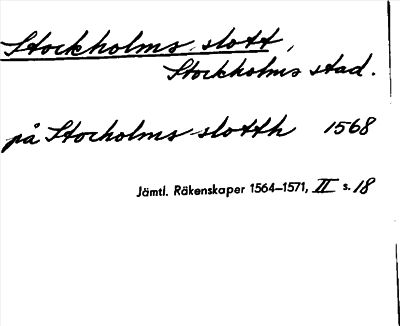 Stockholms slott,
Stockholms stad.
på Stocholms slotth 1568
Jämtl. Räkenskaper 1564–1571, II s. 18